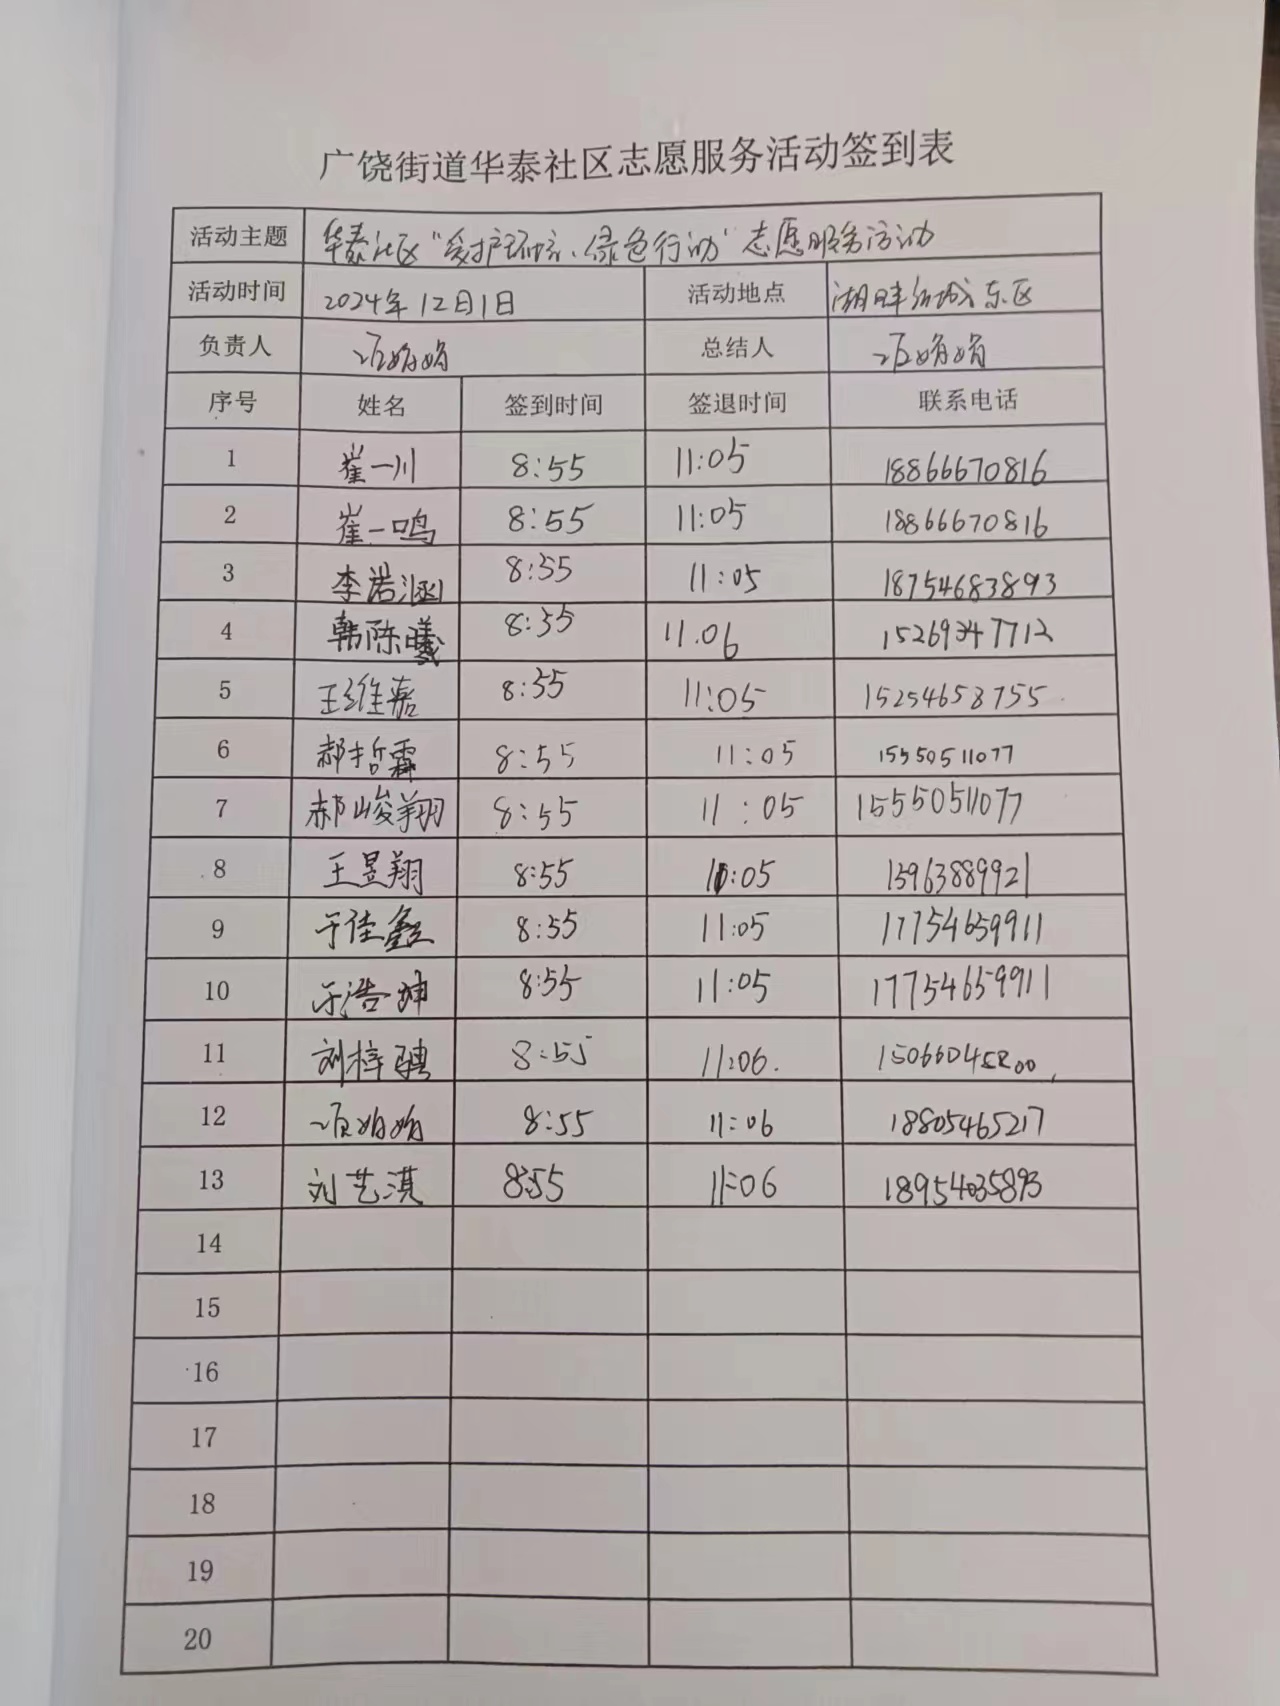 广饶街道华泰社区志愿服务活动签到表
活动主题 华泰社区“爱护环境、绿色行动”志愿服务活动
活动时间 2024年12月1日 活动地点 湖畔名城东区
负责人 项娟娟 总结人 项娟娟
序号 姓名 签到时间 签退时间 联系电话
1 崔一川 8:55 11:05 18866670816
2 崔一鸣 8:55 11:05 18866670816
3 李诺涵 8:55 11:05 18754683893
4 韩陈曦 8:55 11.06 15269347712
5 王维嘉 8:55 11:05 15254658755
6 郝哲霖 8:55 11:05 15550511077
7 郝峻翔 8:55 11:05 15550511077
8 王昱翔 8:55 11:05 13963889921
9 于佳鑫 8:55 11:05 17754659911
10 于浩坤 8:55 11:05 17754659911
11 刘梓骋 8:55 11:06.
12 项娟娟 8:55 11:06 18805465217
13 刘艺淇 8:55 11:06 18954035893
14
15
16
17
18
19
20